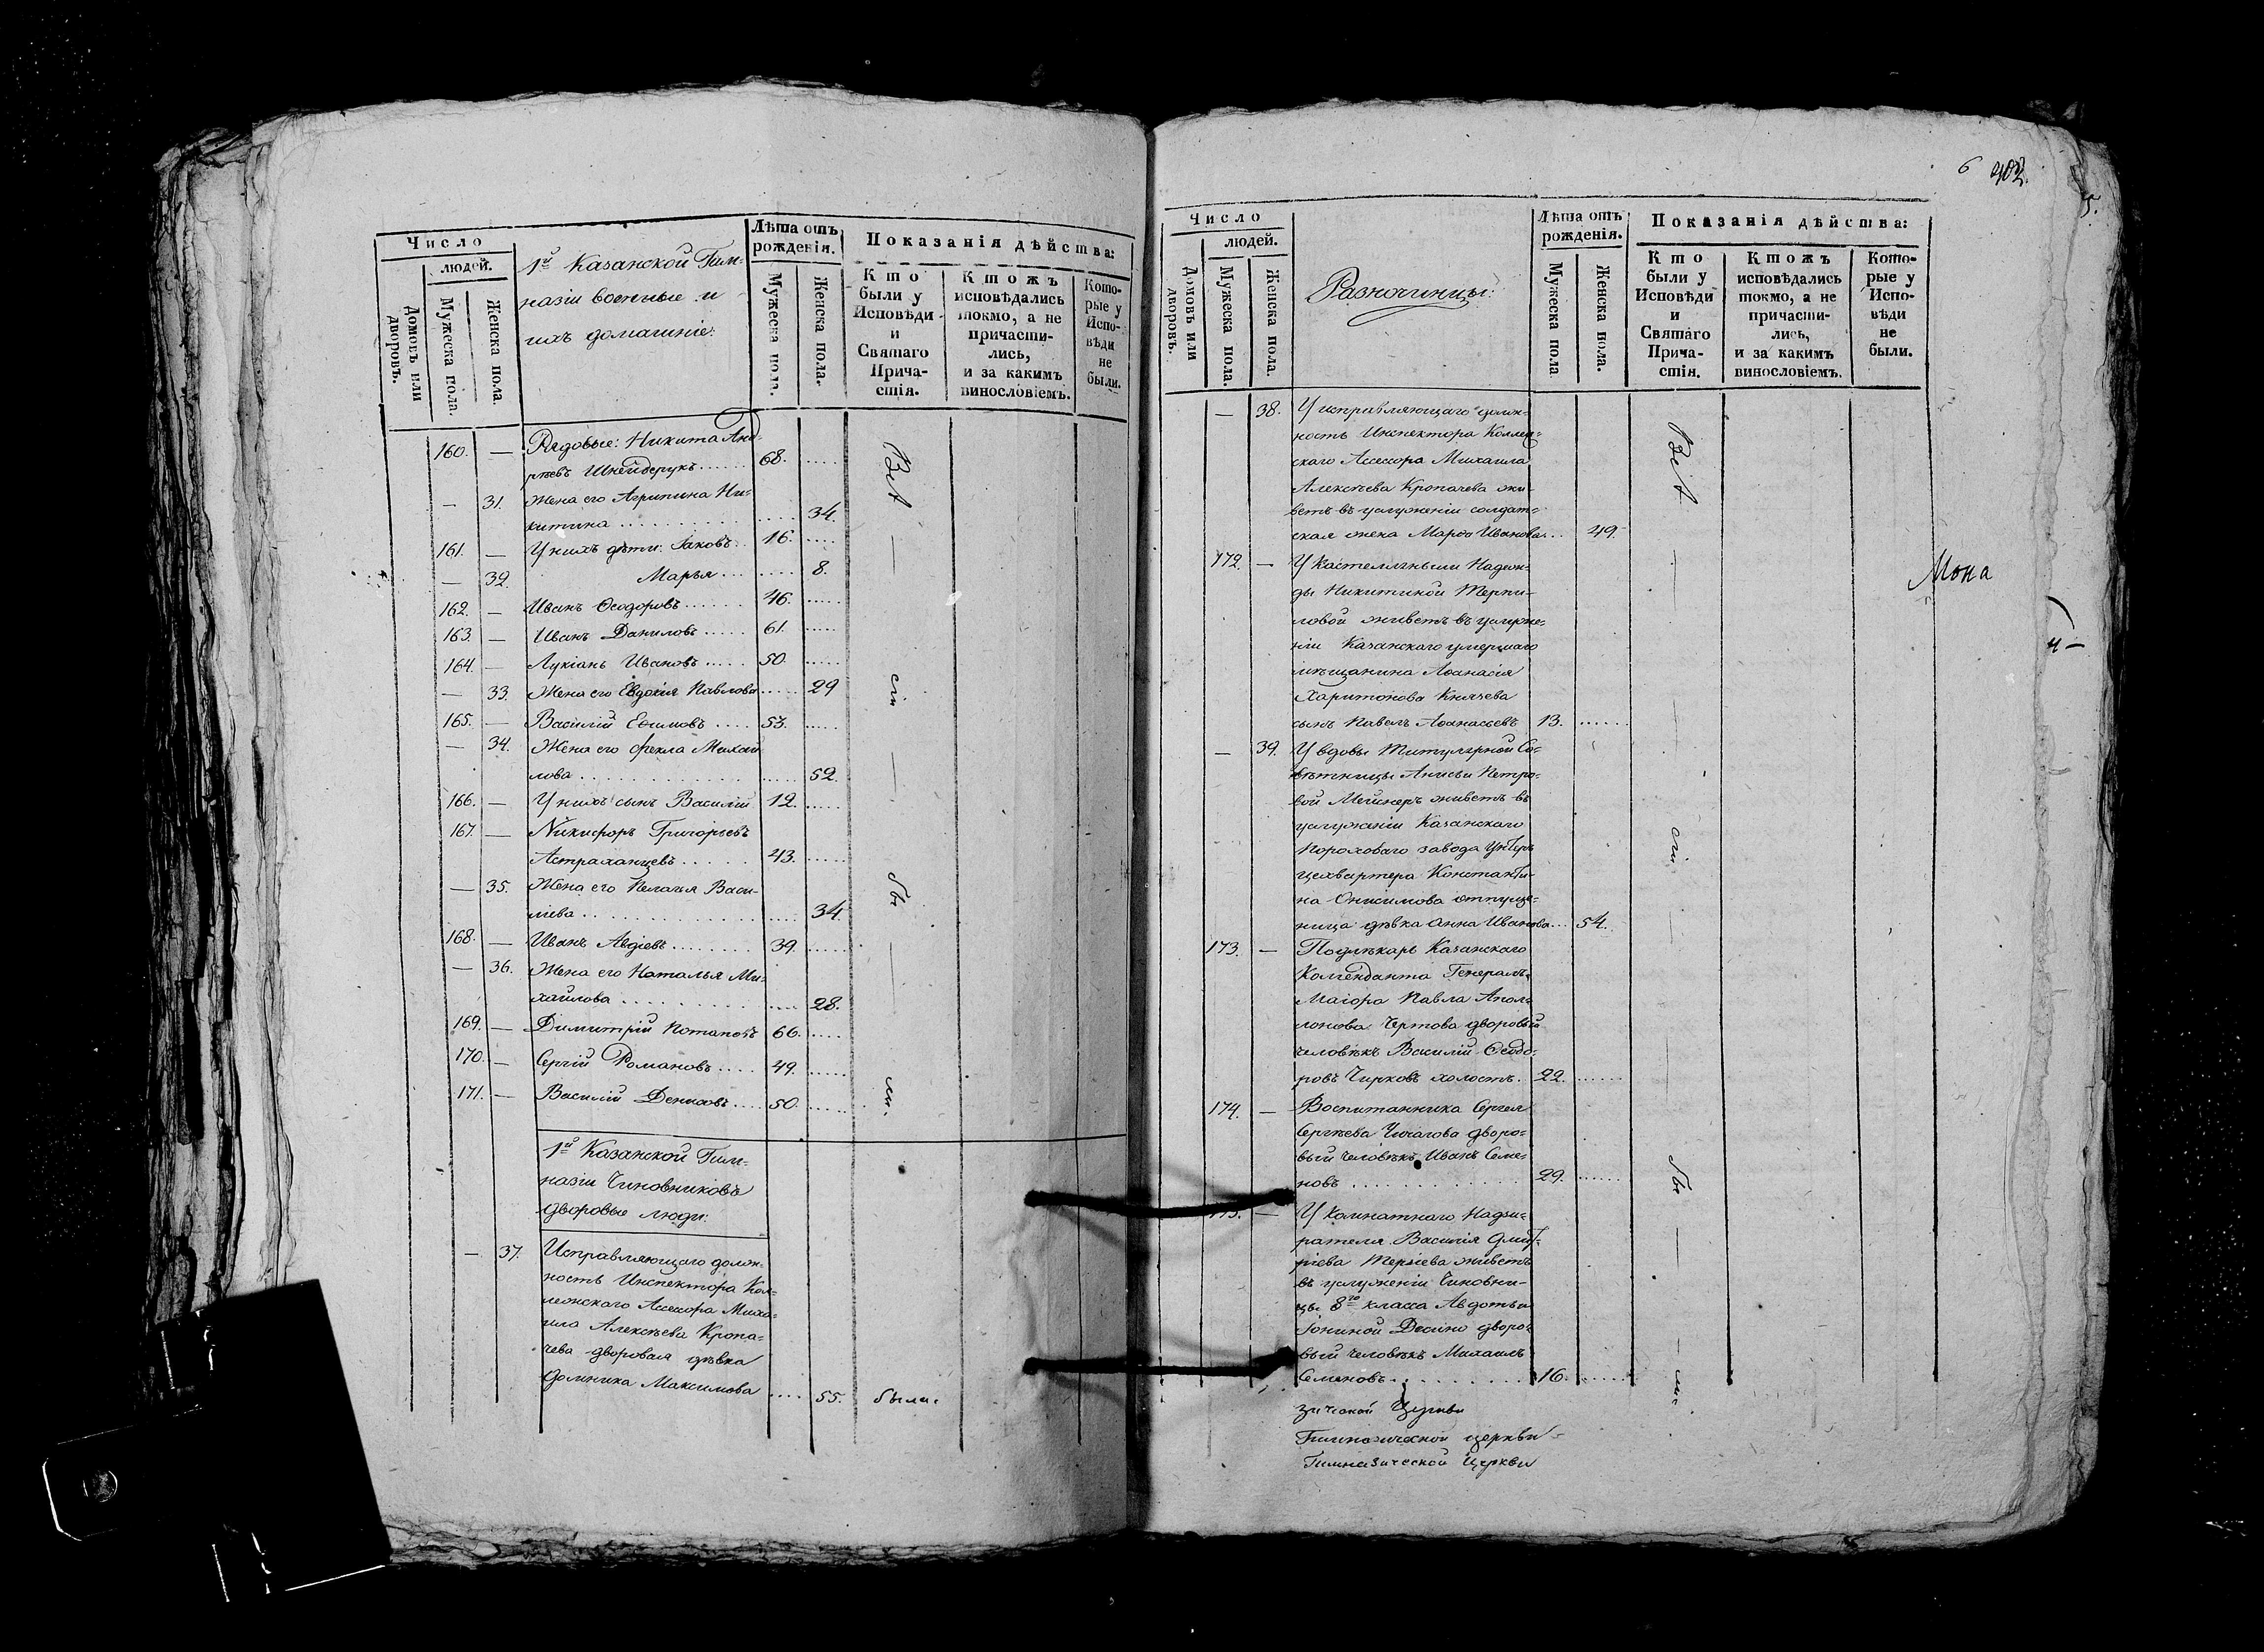 Число
людей.
Домовъ или дворовъ.
Мужеска пола.
Женска пола.
1й Казанской Гим-
назіи военные и
ихъ домашніе:
Лѣта отъ
рожденія.
Мужеска пола.
Женска пола.
Показанія дѣйства:
Кто
были у
Исповѣди
и
Святаго
Прича-
стія.
Ктожъ
исповѣдались
токмо, а не
причасти-
лись,
и за какимъ
винословіемъ.
Кото-
рые у
Испо-
вѣди
не
были.
160. — Рядовые: Никита Анд-
рѣевъ Шнейдерукъ...... 68. .....
— 31. Жена его Агрипина Ни-
китина ........... ..... 34.
161. — У нихъ дѣти: Іаковъ.. 16. .....
— 32. Марья... ..... 8.
162. — Иванъ Ѳеодоровъ...... 46. .....
163. — Иванъ Даниловъ..... 61. .....
164. — Лукіанъ Ивановъ..... 50. .....
— 33. Жена его Евдокія Павлова..... 29
165. — Василій Ефимовъ.... 53. .....
— 34. Жена его Ѳекла Михай
лова ............. ..... 52.
166. — У нихъ сынъ Василій 12. .....
167. — Никифоръ Григорьевъ
Астраханцевъ...... 43. .....
— 35. Жена его Пелагья Васи-
льева ............. ..... 34.
168. — Иванъ Авдіевъ........ 39. .....
— 36. Жена его Наталья Ми-
хайлова .......... .... 28.
169. — Димитрій Потаповъ 66. .....
170. — Сергій Романовъ.... 49. .....
171. — Василій Денисовъ.... 50. .....
Всѣ — сіи — бы — ли.
1й Казанской Гим-
назіи Чиновниковъ
дворовые люди:
— 37. Исправляющаго долж-
ность Инспектора Кол-
лежскаго Ассесора Миха-
ила Алексѣева Кропа-
чева дворовая дѣвка
Домника Максимова .... 55. были.
6 402.
Число
людей.
Домовъ или дворовъ.
Мужеска пола.
Женска пола.
Разночинцы:
Лѣта отъ
рожденія.
Мужеска пола
Женска пола.
Показанія дѣйства:
Кто
были у
Исповѣди
и
Святаго
Прича-
стія.
Ктожъ
исповѣдались
токмо, а не
причасти-
лись,
и за какимъ
винословіемъ.
Кото-
рые у
Испо-
вѣди
не
были.
— 38. У исправляющаго долж-
ность Инспектора Коллеж-
скаго Ассесора Михаила
Алексѣева Кропачева жи-
ветъ въ услуженіи солдат-
ская жена Марѳа Иванова... 49.
172. — У Кастелянши Надеж-
ды Никитиной Терпи-
ловой живетъ въ услуже-
ніи Казанскаго умершаго
мѣщанина Аѳанасія
Харитонова Князева
сынъ Павелъ Аѳанасьевъ 13. ......
— 39. У вдовы Титулярной Со-
вѣтницы Анисьи Петро-
вой Мейснеръ живетъ въ
услуженіи Казанскаго
Пороховаго завода Унтеръ
цейхвартера Константи-
на Онисимова отпуще-
ница дѣвка Анна Иванова... 54.
173. — Подлѣкарь Казанскаго
Коменданта Генералъ-
Маіора Павла Апол-
лонова Чертова дворовый
человѣкъ Василій Ѳеодо-
ровъ Чирковъ холостъ. 22. ......
174. — Воспитанника Сергея
Сергѣева Чичагова дворо-
вый человѣкъ Иванъ Семе-
новъ ............ 29. ......
175. — У комнатнаго Надзи-
рателя Василія Дмит-
ріева живетъ
въ услуженіи Чиновни-
цы 8го класса Авдотьи
дворо-
вый человѣкъ Михаилъ
Семеновъ.......... 16. ......
Всѣ — сіи — бы — ли.
зической Церкви
Гимназической церкви
Гимназической Церкви
Мона